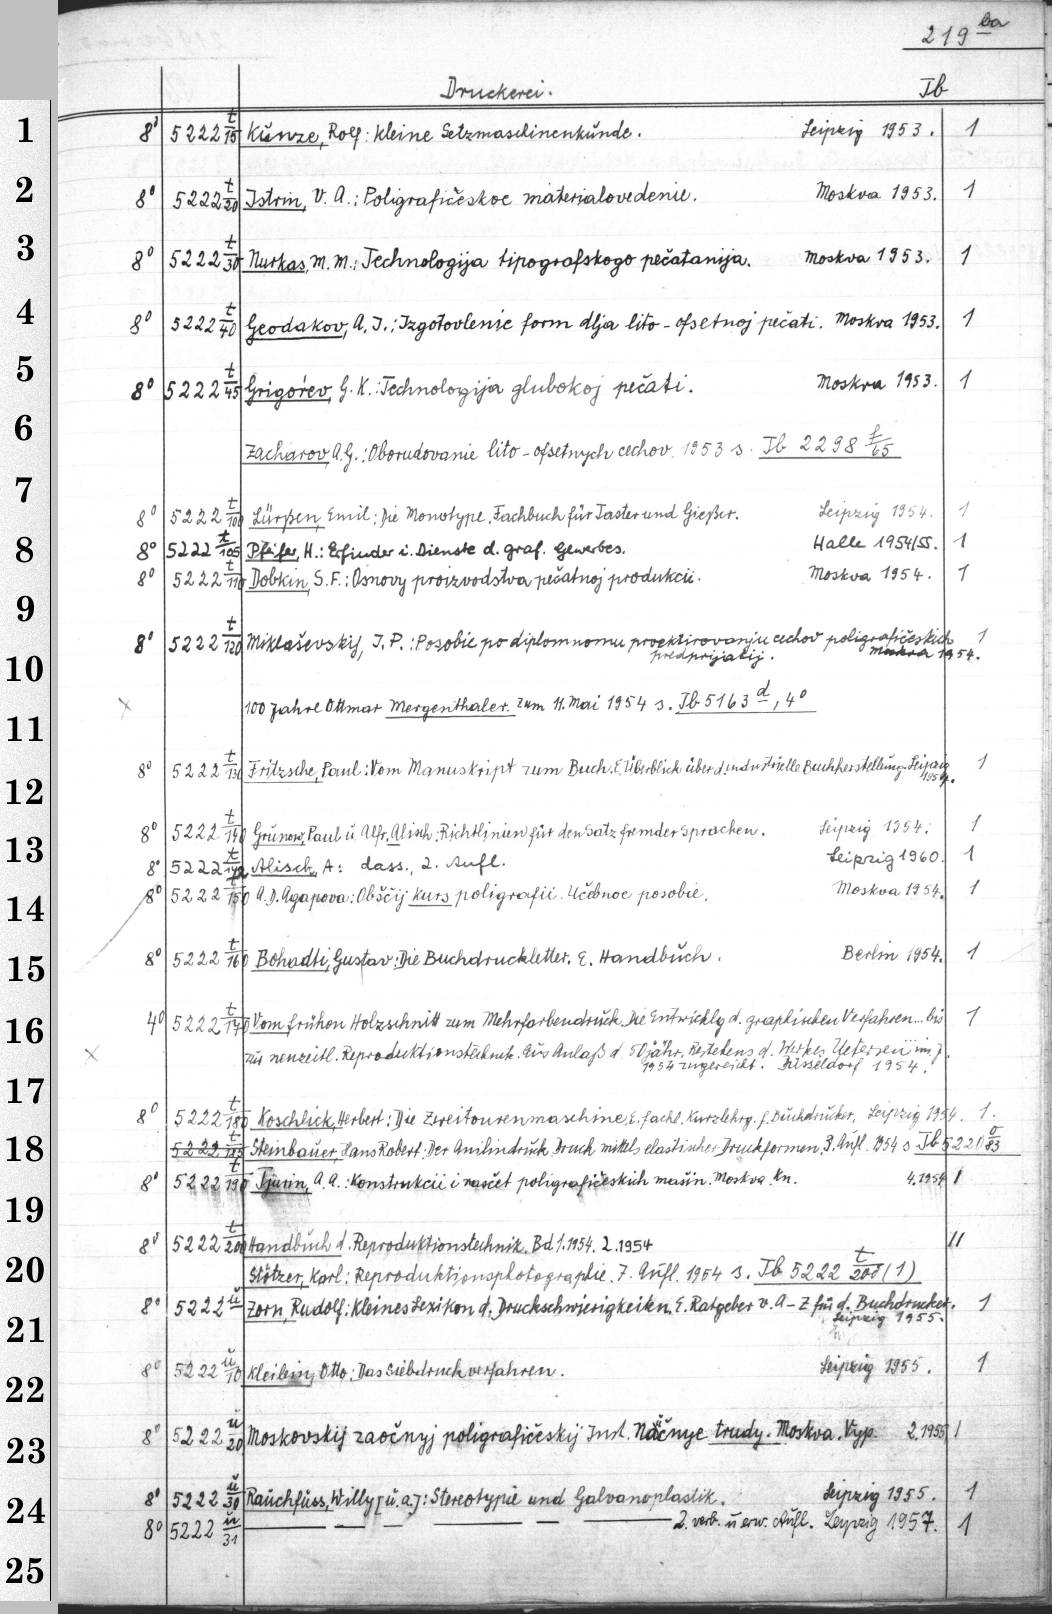 219 ba
Druckerei. Jb
1 8° 5222 t/15 Kunze, Rolf: Kleine Setzmaschinenkunde. Leipzig 1953. 1
2 8° 5222 t/20 Istrin, V. A.: Poligrafičeskoe materialovedenie. Moskva 1953. 1
3 8° 5222 t/30 Nurkas, M. M.: Technologija tipografskogo pečatanija. Moskva 1953. 1
4 8° 5222 t/40 Geodakov, A. I.: Izgotovlenie form dlja lito-ofsetnoj pečati. Moskva 1953. 1
5 8° 5222 t/45 Grigor'ev, G. K.: Technologija glubokoj pečati. Moskva 1953. 1
6 Zacharov, A. G.: Oborudovanie lito-ofsetnych cechov. 1953 s. Jb 2298 f/65
7 8° 5222 t/100 Lürßen, Emil: Die Monotype. Fachbuch für Taster und Gießer. Leipzig 1954. 1
8 8° 5222 t/105 Pfeifer, H.: Erfinder i. Dienste d. graf. Gewerbes. Halle 1954/55. 1
8° 5222 t/110 Dobkin, S. F.: Osnovy proizvodstva pečatnoj produkcii. Moskva 1954. 1
9
8° 5222 t/120 Miklaševskij, I. P.: Posobie po diplomnomu proektirovanju cechov poligrafičeskich 1
10 predprijatij. Moskva 1954.
100 Jahre Ottmar Mergenthaler. Zum 11. Mai 1954 s. Jb 5163 d, 4°
11
8° 5222 t/130 Fritzsche, Paul: Vom Manuskript zum Buch. E. Überblick über d. industrielle Buchherstellung. Leipzig 1
12 1954.
8° 5222 t/140 Grunow, Paul u. Alfr. Alisch: Richtlinien für den Satz fremder Sprachen. Leipzig 1954. 1
13 8° 5222 t/142 Alisch, A: dass., 2. Aufl. Leipzig 1960. 1
14 8° 5222 t/150 A. D. Agapova: Obščij kurs poligrafii. Učebnoe posobie. Moskva 1954. 1
15 8° 5222 t/160 Bohadti, Gustav: Die Buchdruckletter. E. Handbuch. Berlin 1954. 1
16 4° 5222 t/170 Vom frühen Holzschnitt zum Mehrfarbendruck. Die Entwicklg d. graphischen Verfahren... bis 1
zur neuzeitl. Reproduktionstechnik. Aus Anlaß d. 50jähr. Bestehens d. Werkes Uetersen im J.
1954 zugereicht. Düsseldorf 1954.
17 8° 5222 t/180 Koschlick, Herbert: Die Zweitourenmaschine. E. fachl. Kurzlehrg. f. Buchdrucker. Leipzig 1954. 1.
18 5222 t/185 Steinbauer, Hans Robert: Der Anilindruck. Druck mittels elastischer Druckformen. 3. Aufl. 1954 s Jb 5220 o/83
8° 5222 t/190 Tjurin, A. A.: Konstrukcii i rasčet poligrafičeskich mašin. Moskva. Kn. 4. 1954 1
19
8° 5222 t/200 Handbuch d. Reproduktionstechnik. Bd 1. 1954. 2. 1954 11
20 Stötzer, Karl: Reproduktionsphotographie. 7. Aufl. 1954 s. Jb 5222 t/200 (1)
8° 5222 u Zorn, Rudolf: Kleines Lexikon d. Druckschwierigkeiten. E. Ratgeber v. A-Z für d. Buchdrucker. 1
21 Leipzig 1955.
22 8° 5222 u/10 Kleilein, Otto: Das Siebdruckverfahren. Leipzig 1955. 1
23 8° 5222 u/20 Moskovskij zaočnyj poligrafičeskij Inst. Naučnye trudy. Moskva. Vyp. 2. 1955 1
24 8° 5222 u/30 Rauchfuss, Willy [u. a.]: Stereotypie und Galvanoplastik. Leipzig 1955. 1
8° 5222 u/31 — — — — — — 2. verb. u erw. Aufl. Leipzig 1957. 1
25